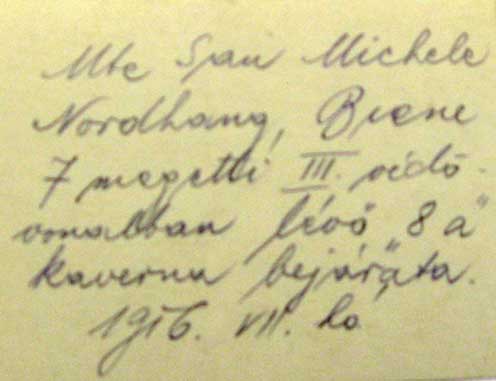 Mte San Michele
Nordhang, Biene
7 megetti III. védő-
vonalban lévő "8 a"
kaverna bejárata.
1916. VII. hó